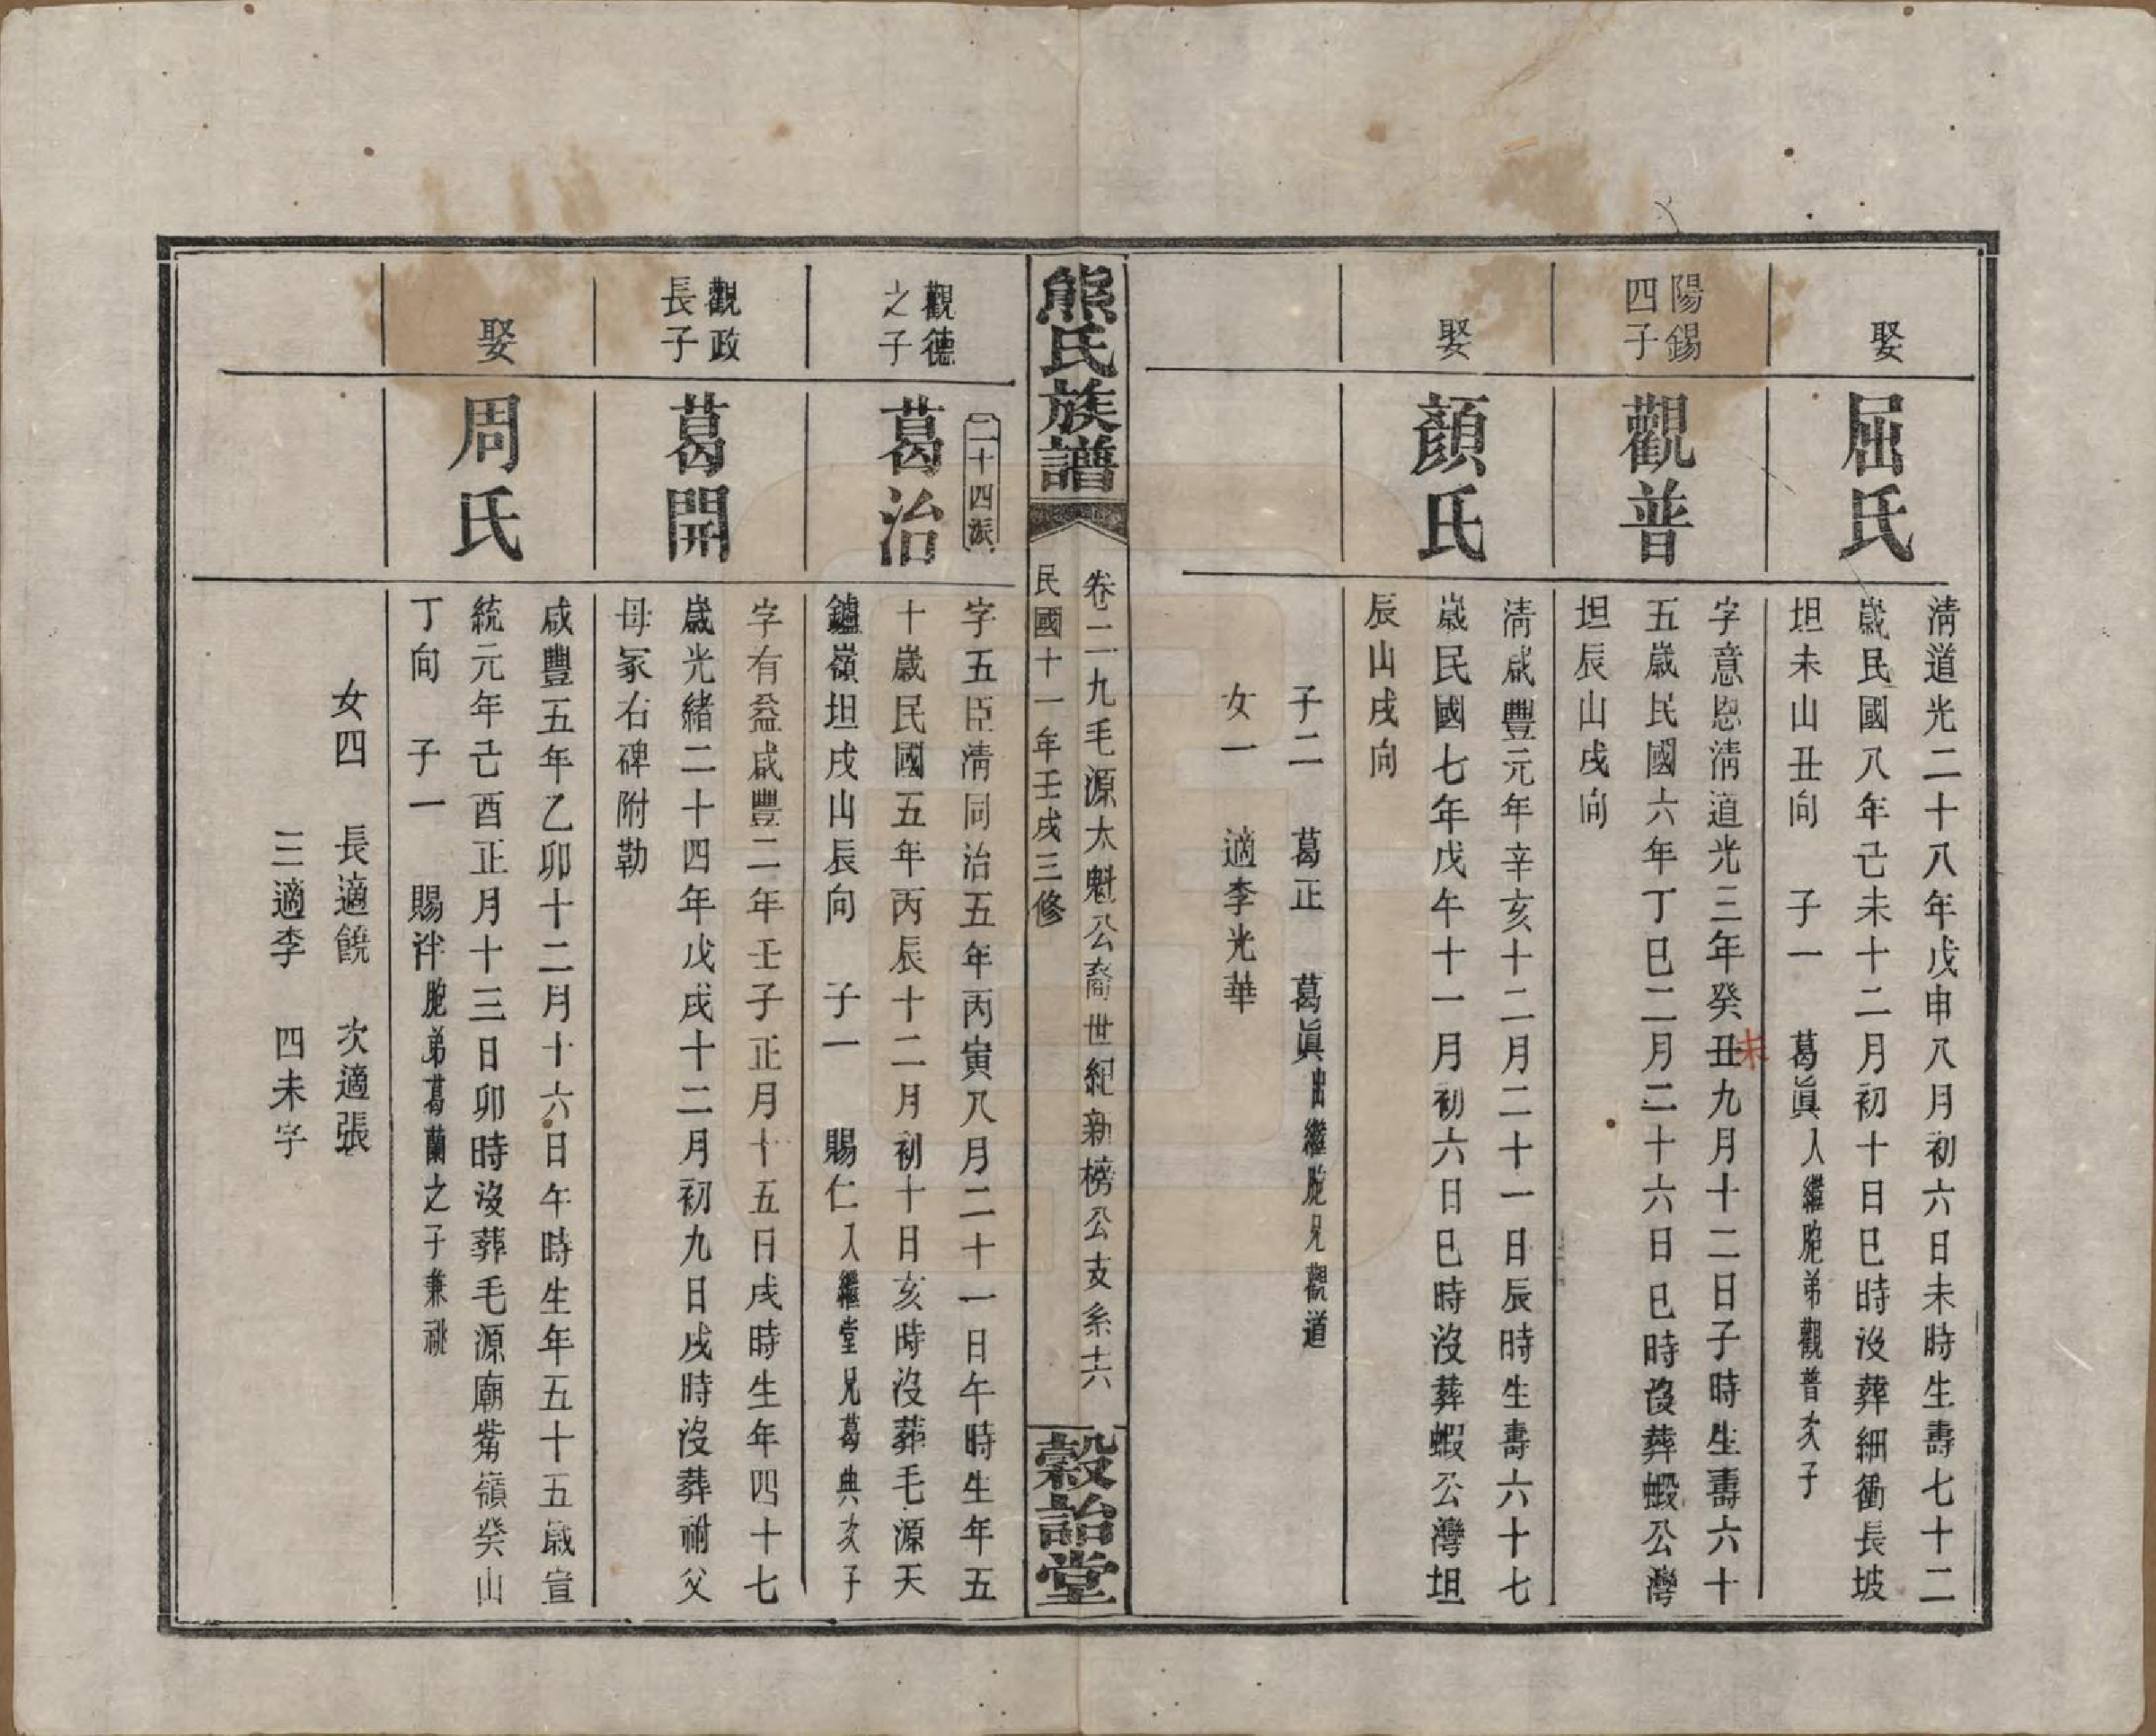 娶
屈氏
清道光二十八年戊申八月初六日未時生壽七十二
歲民國八年己未十二月初十日巳時沒葬細衝長坡
坦未山丑向　子一　葛眞入繼胞弟觀普次子
陽錫
四子
觀普
字意恩清道光三年癸丑九月十二日子時生壽六十
未
五歲民國六年丁巳二月二十六日巳時沒葬蝦公灣
坦辰山戌向
娶
顏氏
清咸豐元年辛亥十二月二十一日辰時生壽六十七
歲民國七年戊午十一月初六日巳時沒葬蝦公灣坦
辰山戌向
子二　葛正　葛眞出繼胞兄觀道
女一　適李光華
熊氏族譜
卷二九毛源太魁公裔世紀新榜公支系十六
民國十一年壬戌三修
穀詒堂
二十四派
觀德
之子
葛治
字五臣清同治五年丙寅八月二十一日午時生年五
十歲民國五年丙辰十二月初十日亥時沒葬毛源天
鑪嶺坦戌山辰向　子一　賜仁入繼堂兄葛典次子
觀政
長子
葛開
字有益咸豐二年壬子正月十五日戌時生年四十七
歲光緒二十四年戊戌十二月初九日戌時沒葬祔父
母冢右碑附勒
娶
周氏
咸豐五年乙卯十二月十六日午時生年五十五歲宣
統元年己酉正月十三日卯時沒葬毛源廟觜嶺癸山
丁向　子一　賜泮胞弟葛蘭之子兼祧
女四　長適饒　次適張
三適李　四未字